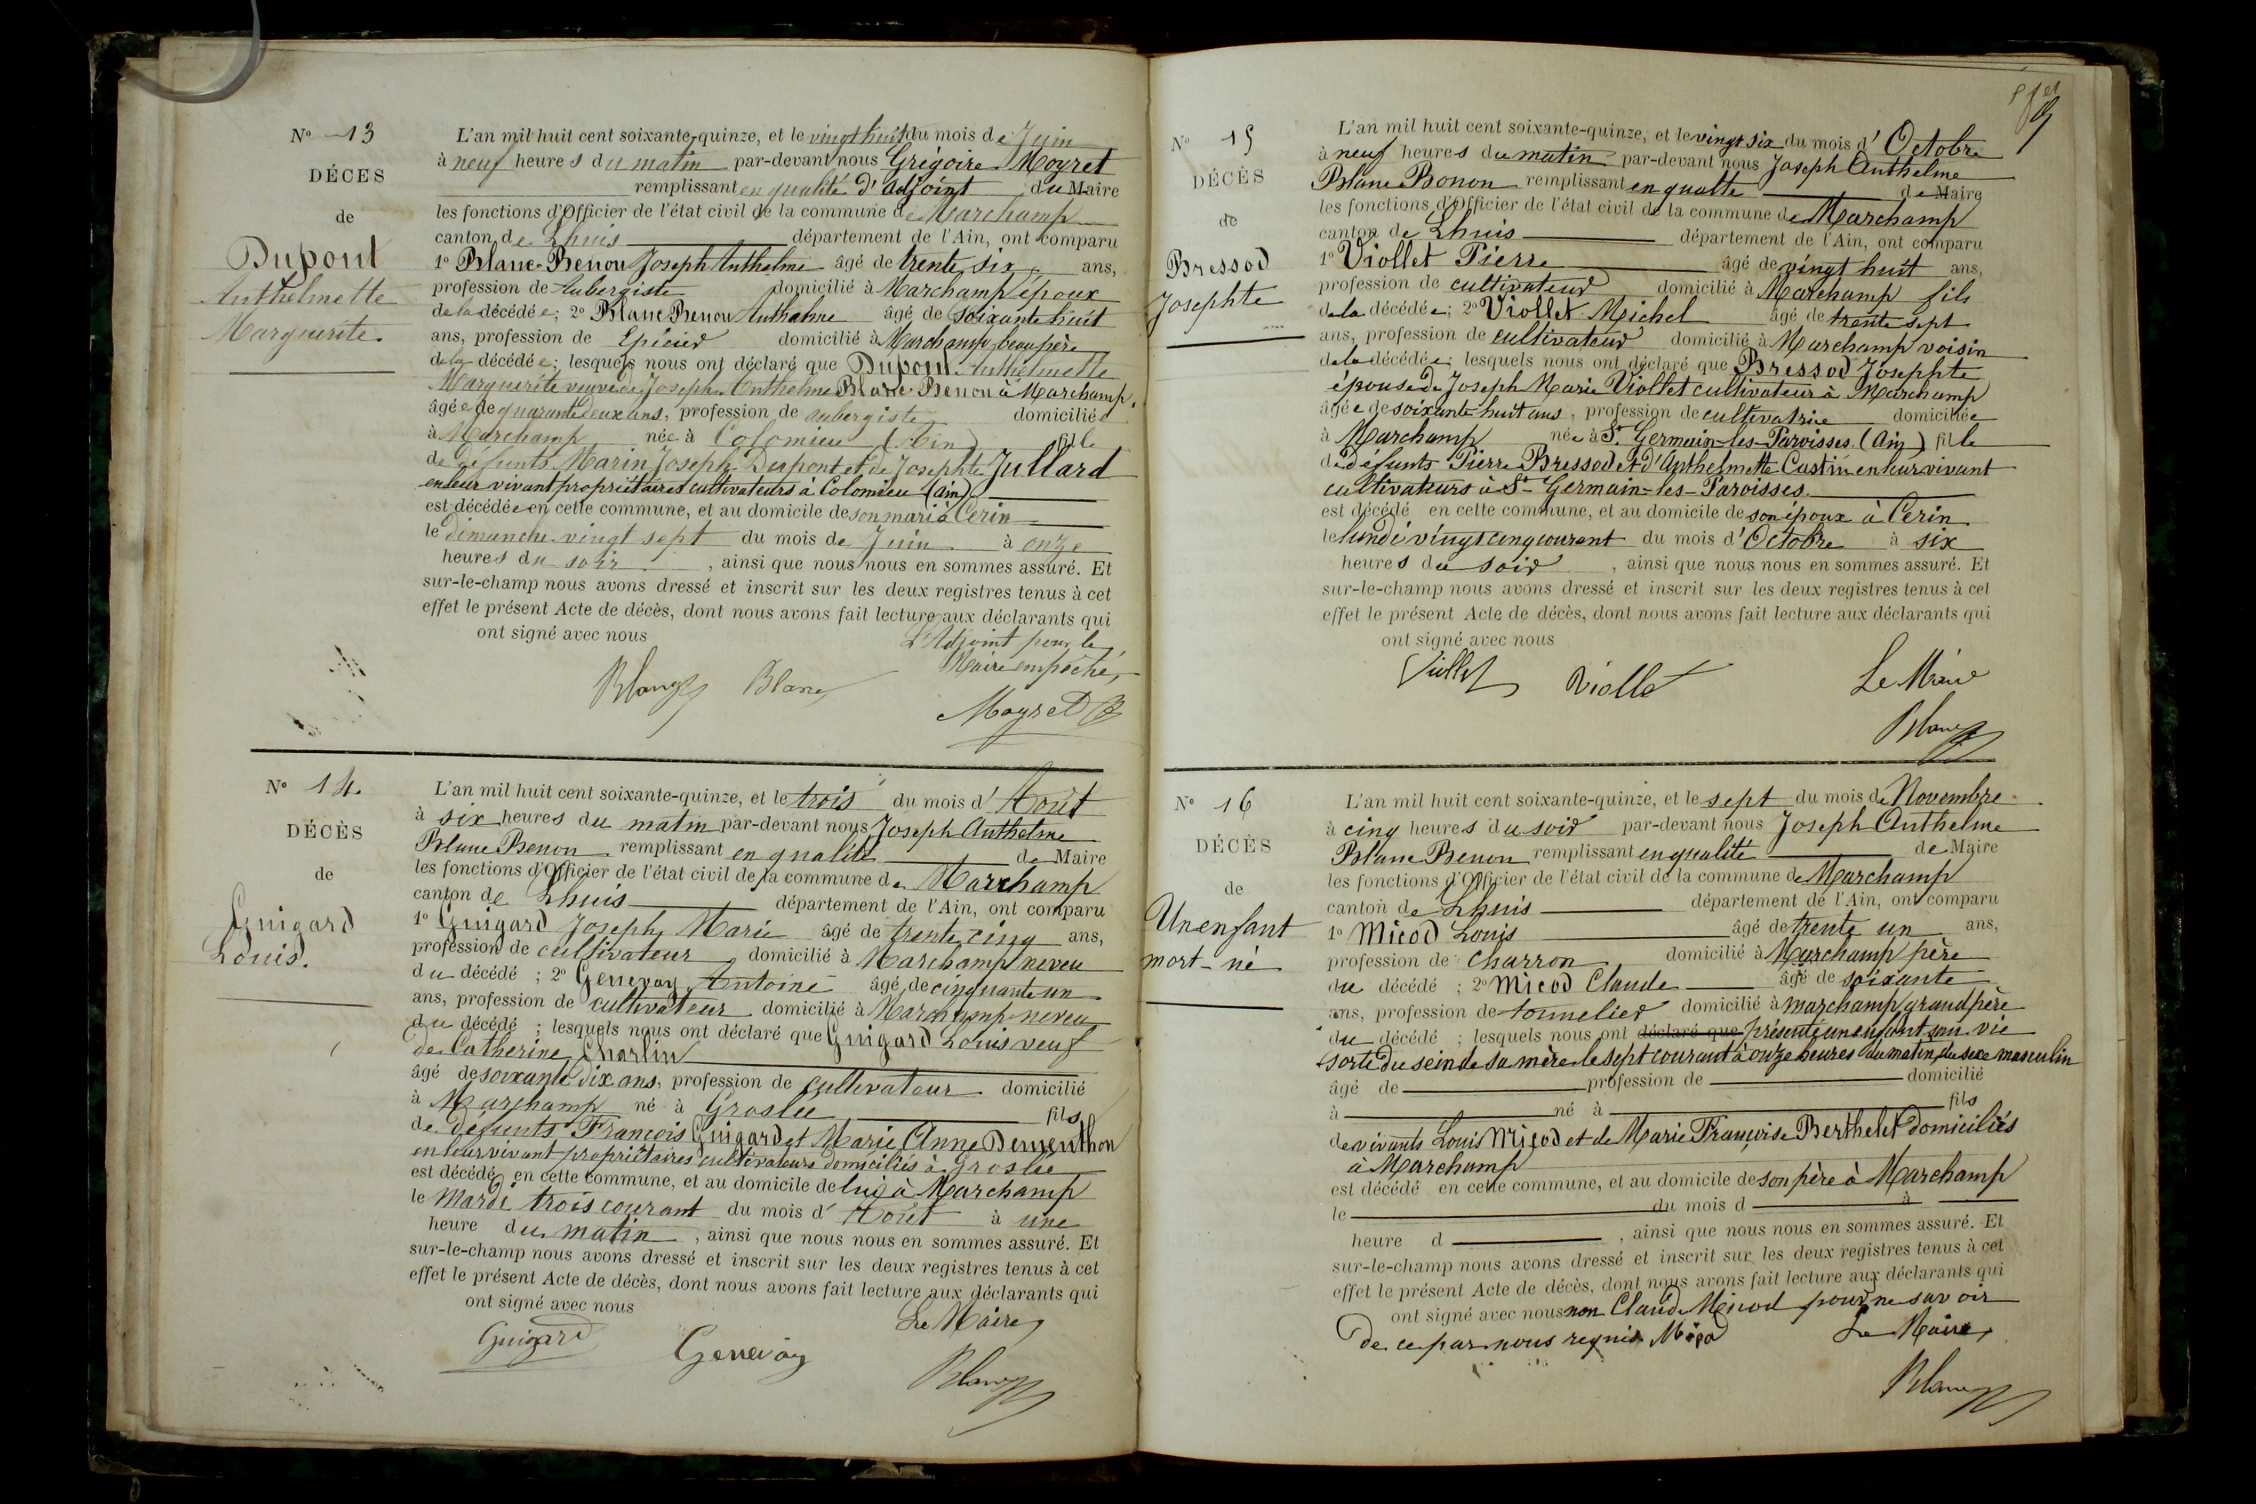 No 13
DÉCÈS
de
Dupont
Anthelmette
Marguerite.
L'an mil huit cent soixante-quinze, et le vingt huit du mois de Juin
à neuf heures du matin par-devant nous Grégoire Moyret
remplissant en qualité d'adjoint du Maire
les fonctions d'Officier de l'état civil de la commune de Marchamp
canton de Lhuis département de l'Ain, ont comparu
1o Blanc-Benon Joseph Anthelme âgé de trente six ans,
profession de aubergiste domicilié à Marchamp époux
de la décédée; 2o Blanc Benon Anthelme âgé de soixante huit
ans, profession de Epicier domicilié à Marchamp beau père
de la décédée; lesquels nous ont déclaré que Dupont Anthelmette
Marguerite veuve de Joseph Anthelme Blanc-Benon à Marchamp,
âgée de quarante deux ans, profession de aubergiste domiciliée
à Marchamp née à Colomieu (Ain) fille
de défunts Marin Joseph Dupont et de Josephte Jullard
en leur vivant propriétaires cultivateurs à Colomieu (ain)
est décédée en cette commune, et au domicile de son mari à Cerin
le dimanche vingt sept du mois de Juin à onze
heures du soir, ainsi que nous nous en sommes assuré. Et
sur-le-champ nous avons dressé et inscrit sur les deux registres tenus à cet
effet le présent Acte de décès, dont nous avons fait lecture aux déclarants qui
ont signé avec nous
L'Adjoint pour le
Maire empêché,
Blanc Blanc
Moyret
No 14.
DÉCÈS
de
Guigard
Louis.
L'an mil huit cent soixante-quinze, et le trois du mois d'Août
à six heures du matin par-devant nous Joseph Anthelme
Blanc Benon remplissant en qualité de Maire
les fonctions d'Officier de l'état civil de la commune de Marchamp
canton de Lhuis département de l'Ain, ont comparu
1o Guigard Joseph Marie âgé de trente cinq ans,
profession de cultivateur domicilié à Marchamp neveu
du décédé; 2o Genevay Antoine âgé de cinquante un
ans, profession de cultivateur domicilié à Marchamp neveu
du décédé; lesquels nous ont déclaré que Guigard Louis veuf
de Catherine Charlin
âgé de soixante dix ans, profession de cultivateur domicilié
à Marchamp né à Groslée fils
de défunts François Guigard et Marie Anne Dementhon
en leur vivant propriétaires cultivateurs domiciliés à Groslée
est décédé en cette commune, et au domicile de lui à Marchamp
le mardi trois courant du mois d'Août à une
heure du matin, ainsi que nous nous en sommes assuré. Et
sur-le-champ nous avons dressé et inscrit sur les deux registres tenus à cet
effet le présent Acte de décès, dont nous avons fait lecture aux déclarants qui
ont signé avec nous
Le Maire,
Guigard Genevay
Blanc
No 15
DÉCÈS
de
Bressod
Josephte
L'an mil huit cent soixante-quinze, et le vingt six du mois d'Octobre
à neuf heures du matin par-devant nous Joseph Anthelme
Blanc Bonon remplissant en qualité de Maire
les fonctions d'Officier de l'état civil de la commune de Marchamp
canton de Lhuis département de l'Ain, ont comparu
1o Viollet Pierre âgé de vingt huit ans,
profession de cultivateur domicilié à Marchamp fils
de la décédée; 2o Viollet Michel âgé de trente sept
ans, profession de cultivateur domicilié à Marchamp voisin
de la décédée; lesquels nous ont déclaré que Bressod Josephte
épouse de Joseph Marie Viollet cultivateur à Marchamp
âgée de soixante huit ans, profession de cultivatrice domiciliée
à Marchamp née à St Germain-les-Paroisses (Ain) fille
de défunts Pierre Bressod et d'Anthelmette Castin en leur vivant
cultivateurs à St-Germain-les-Paroisses
est décédé en cette commune, et au domicile de son époux à Cerin.
le lundi vingt cinq courant du mois d'Octobre à six
heures du soir, ainsi que nous nous en sommes assuré. Et
sur-le-champ nous avons dressé et inscrit sur les deux registres tenus à cet
effet le présent Acte de décès, dont nous avons fait lecture aux déclarants qui
ont signé avec nous
Viollet Viollet Le Maire
Blanc
No 16
DÉCÈS
de
Un enfant
mort-né
L'an mil huit cent soixante-quinze, et le sept du mois de Novembre
à cinq heures du soir par-devant nous Joseph Anthelme
Blanc Benon remplissant en qualité de Maire
les fonctions d'Officier de l'état civil de la commune de Marchamp
canton de Lhuis département de l'Ain, ont comparu
1o Micod Louis âgé de trente un ans,
profession de charron domicilié à Marchamp père
du décédé; 2o Micod Claude âgé de soixante
ans, profession de tonnelier domicilié à marchamp grand père
du décédé; lesquels nous ont déclaré que présenté un enfant sans vie
sorti du sein de sa mère le sept courant à onze heures du matin, du sexe masculin
âgé de profession de domicilié
à né à fils
de vivants Louis Micod et de Marie Françoise Berthelet domiciliés
à Marchamp
est décédé en cette commune, et au domicile de son père à Marchamp
le du mois d à
heure d, ainsi que nous nous en sommes assuré. Et
sur-le-champ nous avons dressé et inscrit sur les deux registres tenus à cet
effet le présent Acte de décès, dont nous avons fait lecture aux déclarants qui
ont signé avec nous non Claude Micod pour ne savoir
de ce par nous requis Micod Le Maire,
Blanc